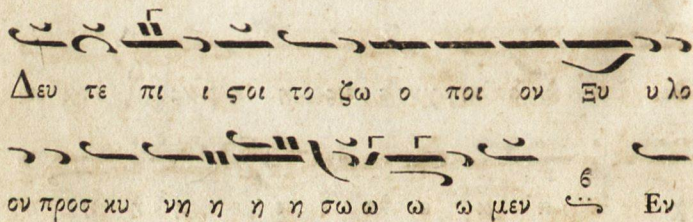 Δευ τε πι ι ϛοι το ζω ο ποι ον Ξυ υ λο
ον προσ κυ νη η η η σω ω ω ω μεν Εν